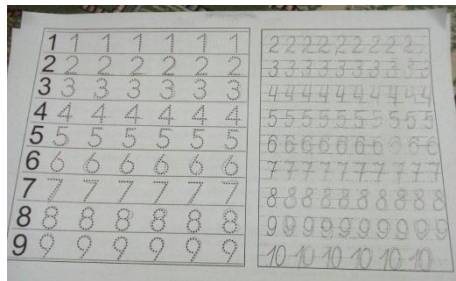 1 1 1 1 1 1 1
2 2 2 2 2 2 2
3 3 3 3 3 3 3
4 4 4 4 4 4 4
5 5 5 5 5 5 5
6 6 6 6 6 6 6
7 7 7 7 7 7 7
8 8 8 8 8 8 8
9 9 9 9 9 9 9
2 2 2 2 2 2 2 2 2
3 3 3 3 3 3 3 3 3
4 4 4 4 4 4 4 4 4
5 5 5 5 5 5 5 5 5 5
6 6 6 6 6 6 6 6 6 6
7 7 7 7 7 7 7 7 7 7
8 8 8 8 8 8 8 8 8 8
9 9 9 9 9 9 9 9 9 9
10 10 10 10 10 10